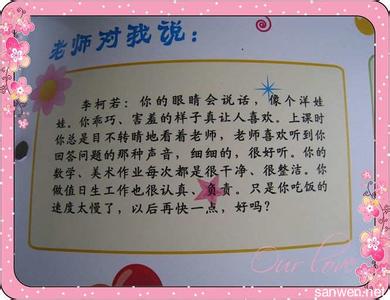 老师对我说：
李柯若：你的眼睛会说话，像个洋娃
娃。你乖巧、害羞的样子真让人喜欢。上课时
你总是目不转睛地看着老师，老师喜欢听到你
回答问题的那种声音，细细的，很好听。你的
数学、美术作业每次都是很干净、很整洁。你
做值日生工作也很认真、负责。只是你吃饭的
速度太慢了，以后再快一点，好吗？
Our love
sanwen.net